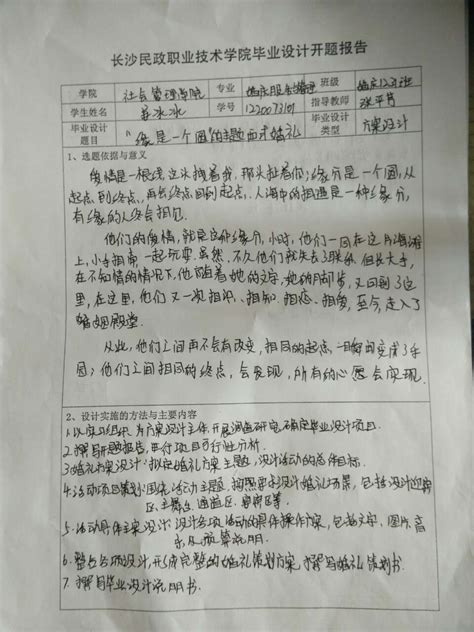 长沙民政职业技术学院毕业设计开题报告
学院 社会管理学院 专业 班级
学生姓名 学号 1220073101 指导教师
毕业设计题目 "缘是一个圆"的主题西式婚礼 毕业设计类型 方案设计
1、选题依据与意义
爱情是一根线，这头拽着我，那头扯着你；缘分是一个圆，从
起点到终点，再由终点回到起点，人海中的相遇是一种缘分，
有缘的人终会相见。
他们的爱情，就是这种缘分，小时，他们一同在这片海滩
上，小手相牵，一起玩耍。虽然，不久他们就失去了联系。但长大手，
在不知情的情况下，他随着她的文字，她的脚步，又回到了这
里，在这里，他们又一次相识、相知、相恋、相爱，至今，走入了
婚姻殿堂。
从此，他们之间再不会有改变，相同的起点，一瞬间变成了乐
园；他们之间相同的终点，会发现，所有的心愿会实现。
2、设计实施的方法与主要内容
1.以实习组织为方案设计主体，开展调查研究，确定毕业设计项目。
2.撰写开题报告，进行项目可行性分析。
3.婚礼方案设计：拟定婚礼方案主题，设计活动的总体目标。
4.活动项目策划：围绕活动主题，按照要求设计婚礼场景，包括设计迎宾
区、主舞台、通道区、宾客区等
5.活动具体方案设计：设计各项活动的具体操作方案，包括文字、图片、音
乐及预算说明。
6.整合各项设计，形成完整的婚礼策划方案，撰写婚礼策划书。
7.撰写毕业设计说明书。